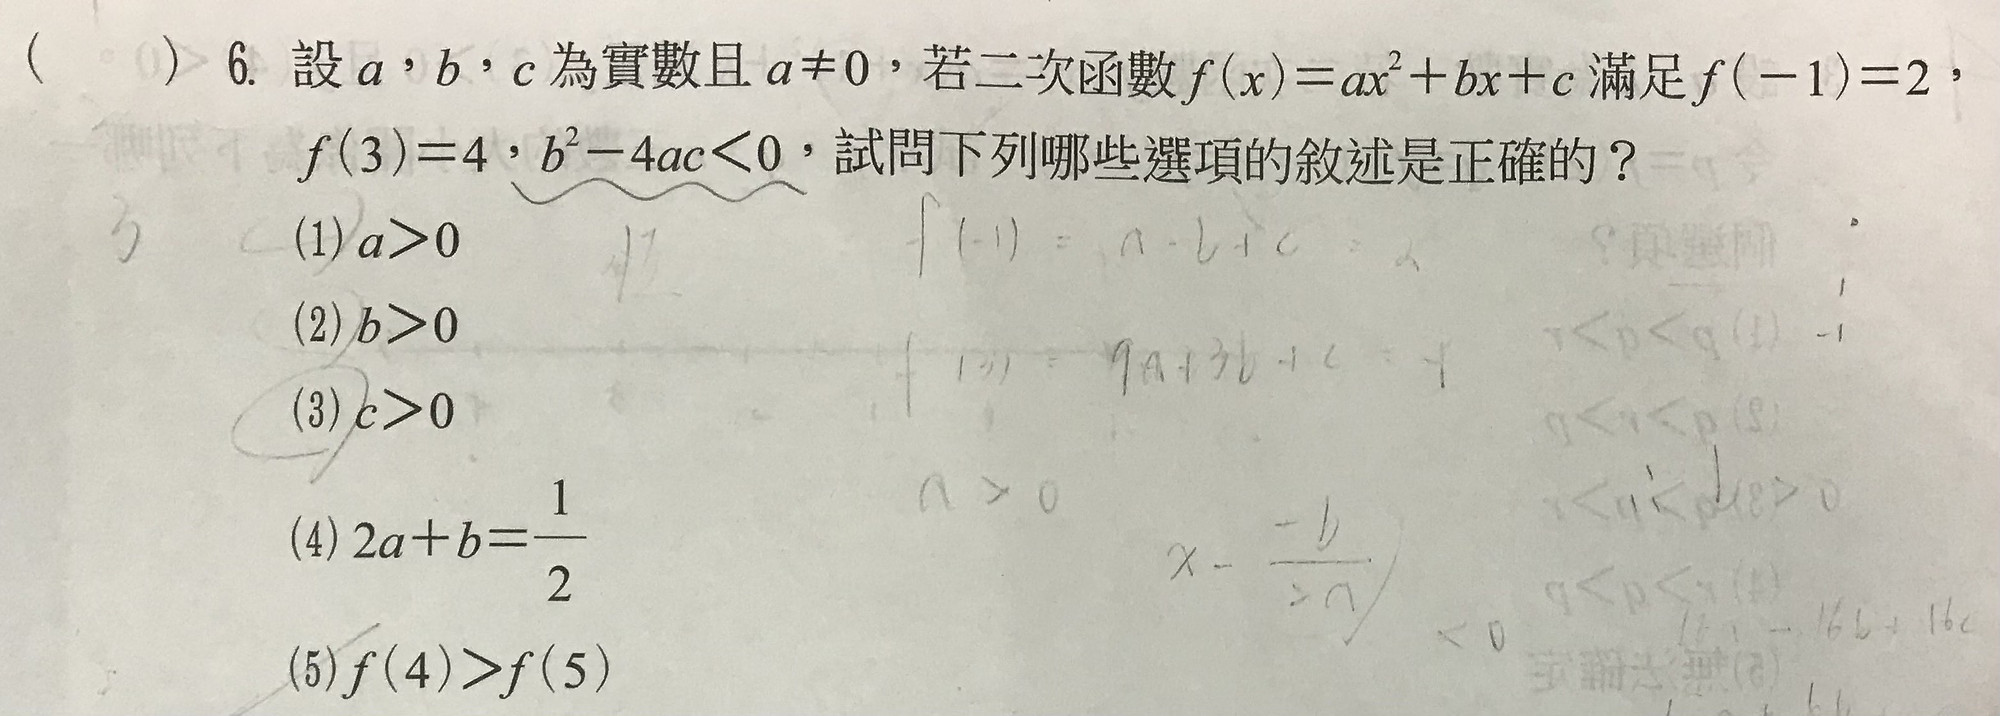 ( ) 6. 設 a，b，c 為實數且 a≠0，若二次函數 f(x)=ax²+bx+c 滿足 f(-1)=2，
f(3)=4，b²-4ac<0，試問下列哪些選項的敘述是正確的？
(1) a>0
f(-1) = a-b+c = 2
(2) b>0
f(3) = 9a+3b+c = 4
(3) c>0
a > 0
(4) 2a+b=1/2
x - -b/2a
< 0
-16b+16c
(5) f(4)>f(5)